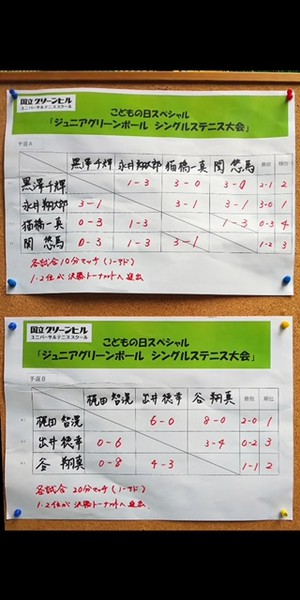 国立グリーンヒル
ユニバーサルテニススクール
こどもの日スペシャル
「ジュニアグリーンボール シングルステニス大会」
予選A
黒澤千輝 永井翔太郎 猫橋一真 関 悠馬 勝敗 順位
黒澤千輝 1-3 3-0 3-0 2-1 2
永井翔太郎 3-1 3-1 3-1 3-0 1
猫橋一真 0-3 1-3 1-3 0-3 4
関 悠馬 0-3 1-3 3-1 1-2 3
各試合10分マッチ(ノーアド)
1.2位が決勝トーナメントへ進出
国立グリーンヒル
ユニバーサルテニススクール
こどもの日スペシャル
「ジュニアグリーンボール シングルステニス大会」
予選B
梶田智滉 出井穂幸 谷 翔真 勝敗 順位
梶田智滉 6-0 8-0 2-0 1
出井穂幸 0-6 3-4 0-2 3
谷 翔真 0-8 4-3 1-1 2
各試合20分マッチ(ノーアド)
1.2位が決勝トーナメントへ進出